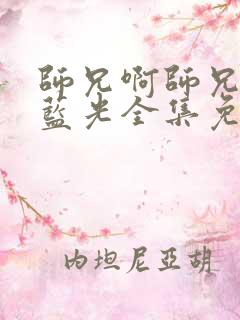 師兄啊師兄
藍光全集免
内坦尼亞胡